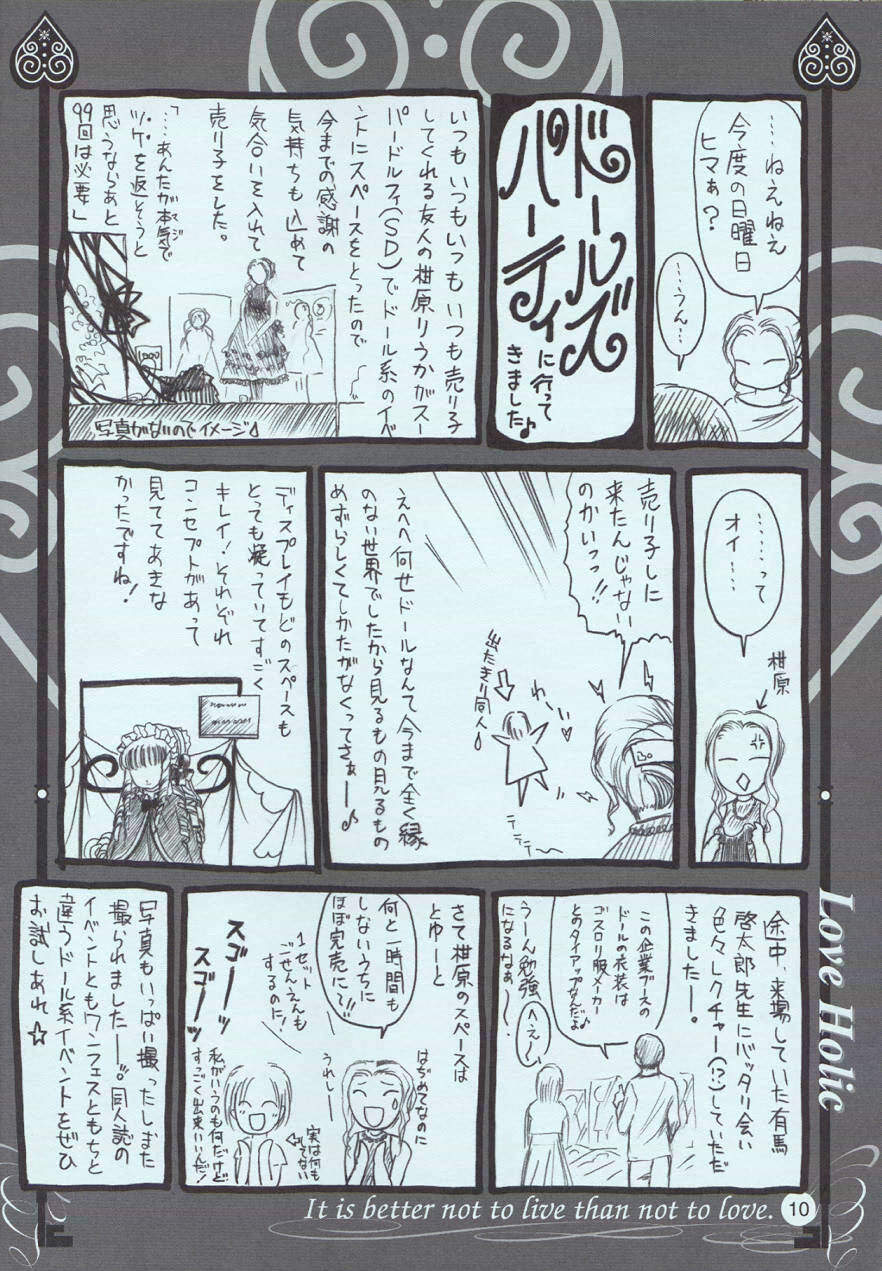 ‥‥ねえねえ
今度の日曜日
ヒマぁ?
‥‥うん‥
ドールズ
パーティに行って
きました♪
いつもいつもいつもいつも売り子
してくれる友人の柑原りうかがスー
パードルフィ(SD)でドール系のイベ
ントにスペースをとったので
今までの感謝の
気持ちも込めて
気合いを入れて
売り子をした。
「‥‥あんたが本気で
マジ
ツケを返そうと
思うならあと
99回は必要」
1000
写真がないのでイメージ♪
‥‥‥って
オイ‥‥
柑原
売り子しに
来たんじゃない
のかいっっ!!
出たきり同人♪
わーい
テテテ‥
えへへ何せドールなんて今まで全く縁
のない世界でしたから見るもの見るもの
めずらしくてしかたがなくってさぁー♪
ディスプレイもどのスペースも
とっても凝っていてすごく
キレイ!それぞれ
コンセプトがあって
見ててあきな
かったですね!
途中、来場していた有馬
啓太郎先生にバッタリ会い
色々レクチャー(!?)していただ
きましたー。
この企業ブースの
ドールの衣装は
ゴスロリ服メーカー
とのタイアップなんだよ♪
うーん勉強
になるなぁ〜。
へえ〜
さて柑原のスペースは
とゆーと
何と一時間も
しないうちに
ほぼ完売にて!!
はぢめてなのに
うれしー
1セット
ごせんえんも
するのに!
スゴーッ
スゴーッ
私がいうのも何だけど
すっごく出来いいんだ!
実は何も
してない
写真もいっぱい撮ったしまた
撮られましたー。同人誌の
イベントともワンフェスともちと
違うドール系イベントをぜひ
お試しあれ☆
Love Holic
It is better not to live than not to love.
10